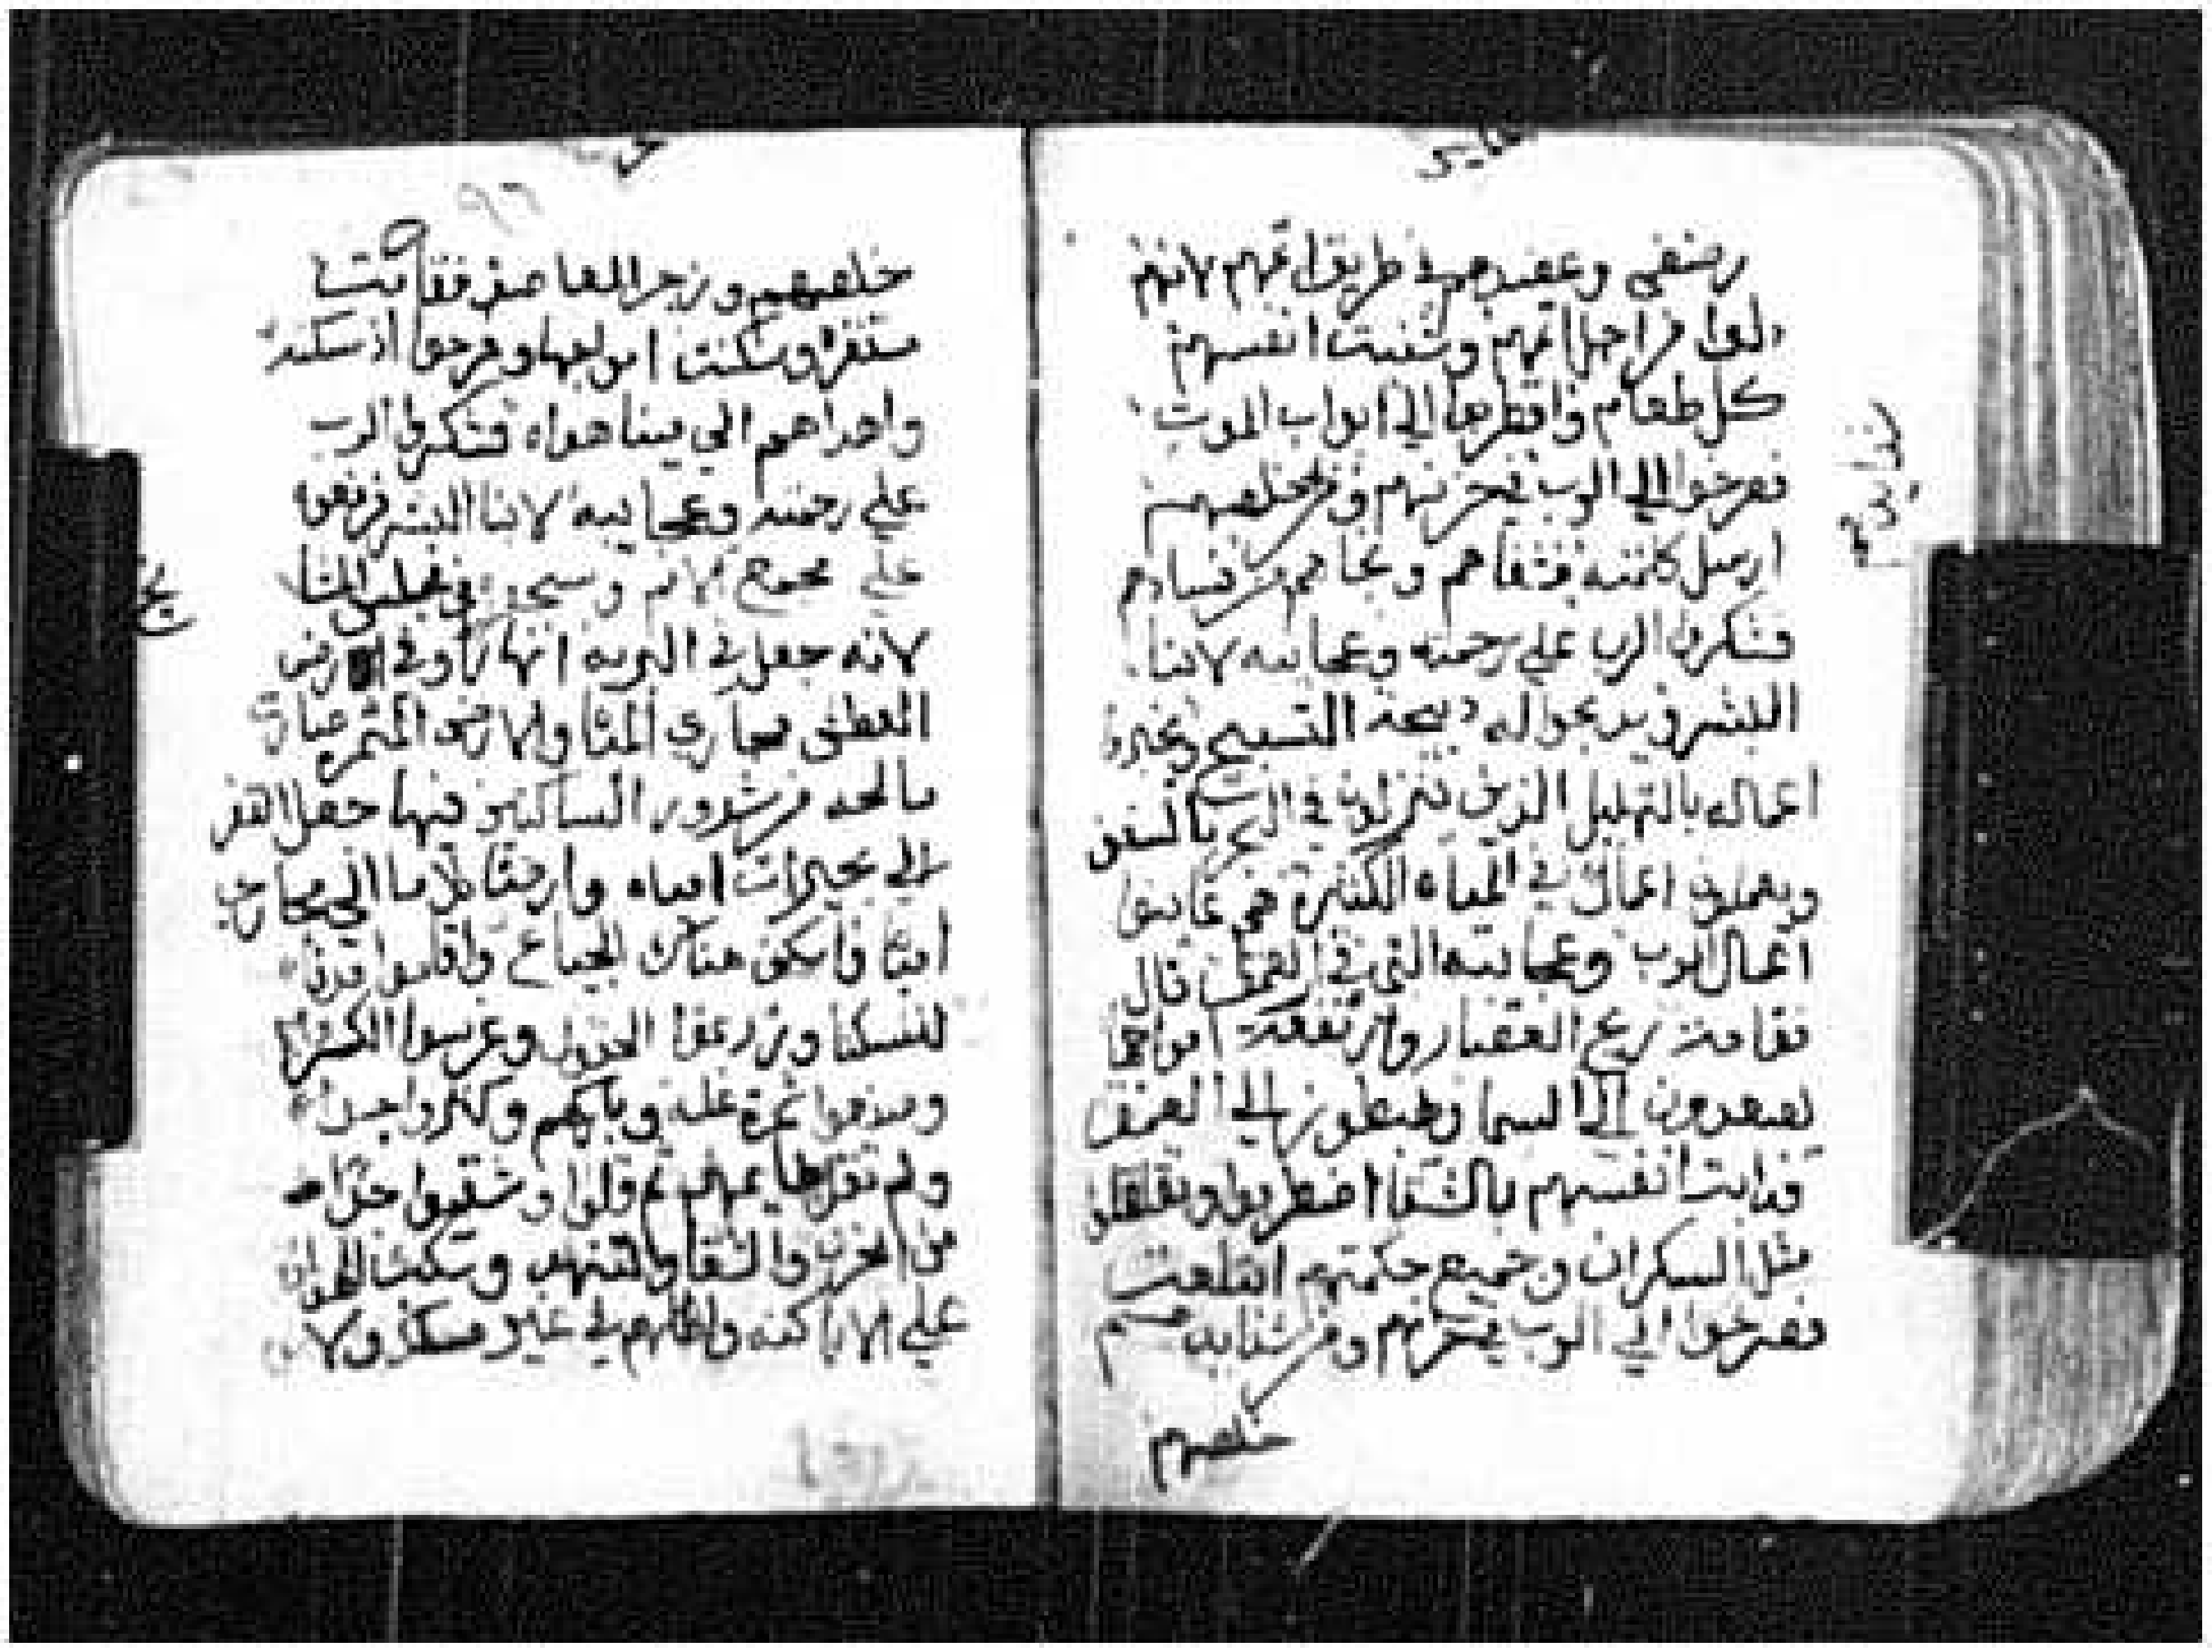 وعضدهم في طريق اثمهم لانهم
من اجل اثمهم وشنيت انفسهم
كل طعام واقتربوا الي ابواب الموت
فصرخوا الي الرب في حزنهم ومن خلصهم
ارسل كلمته فشفاهم ونجاهم من فسادهم
فتشكروا الرب علي رحمته وعجايبه لابنا
البشر ويدبحوا له دبيحة التسبيح ويخبروا
اعماله بالتهليل الذين تنزلون في البحر بالسفن
ويعملون اعمال في المياه الكثيره هم عاينوا
اعمال الرب وعجايبه التي في العمق قال
فقامت ريح العصار وارتفعت امواجها
يصعدون الي السما ويهبطون الي العمق
فدابت انفسهم بالشقا اضطربوا وتقلقلوا
مثل السكران وجميع حكمتهم ابتلعت
فصرخوا الي الرب في حزنهم ومن
خلصهم
٩٦
خلصهم وزجر العاصف
وسكنت امواجها وفرحوا اذ سكنت
واهداهم الي مينا هواه فتشكروا الرب
علي رحمته وعجايبه لابنا البشر فرفعوه
علي مجمع في مجلس المشا
لانه جعل في البريه انهارا وفي
العطش مجاري الما والارض المثمره
مالحه من شرور الساكنين فيها جعل القفر
الي بحيرات امياه وارضا بلا ما الي مجاري
الما واسكن هناك الجياع واقاموا
للسكنا وزرعوا الحقول وغرسوا الكروم
وصنعوا ثمرة غله وباركهم وكثروا جدا
ولم تقل بهايمهم ثم قلوا وشقيوا جدا
من الحزن والشقا وسكب الهوان
علي الاراكنه واظلهم في غير مسكن ولا